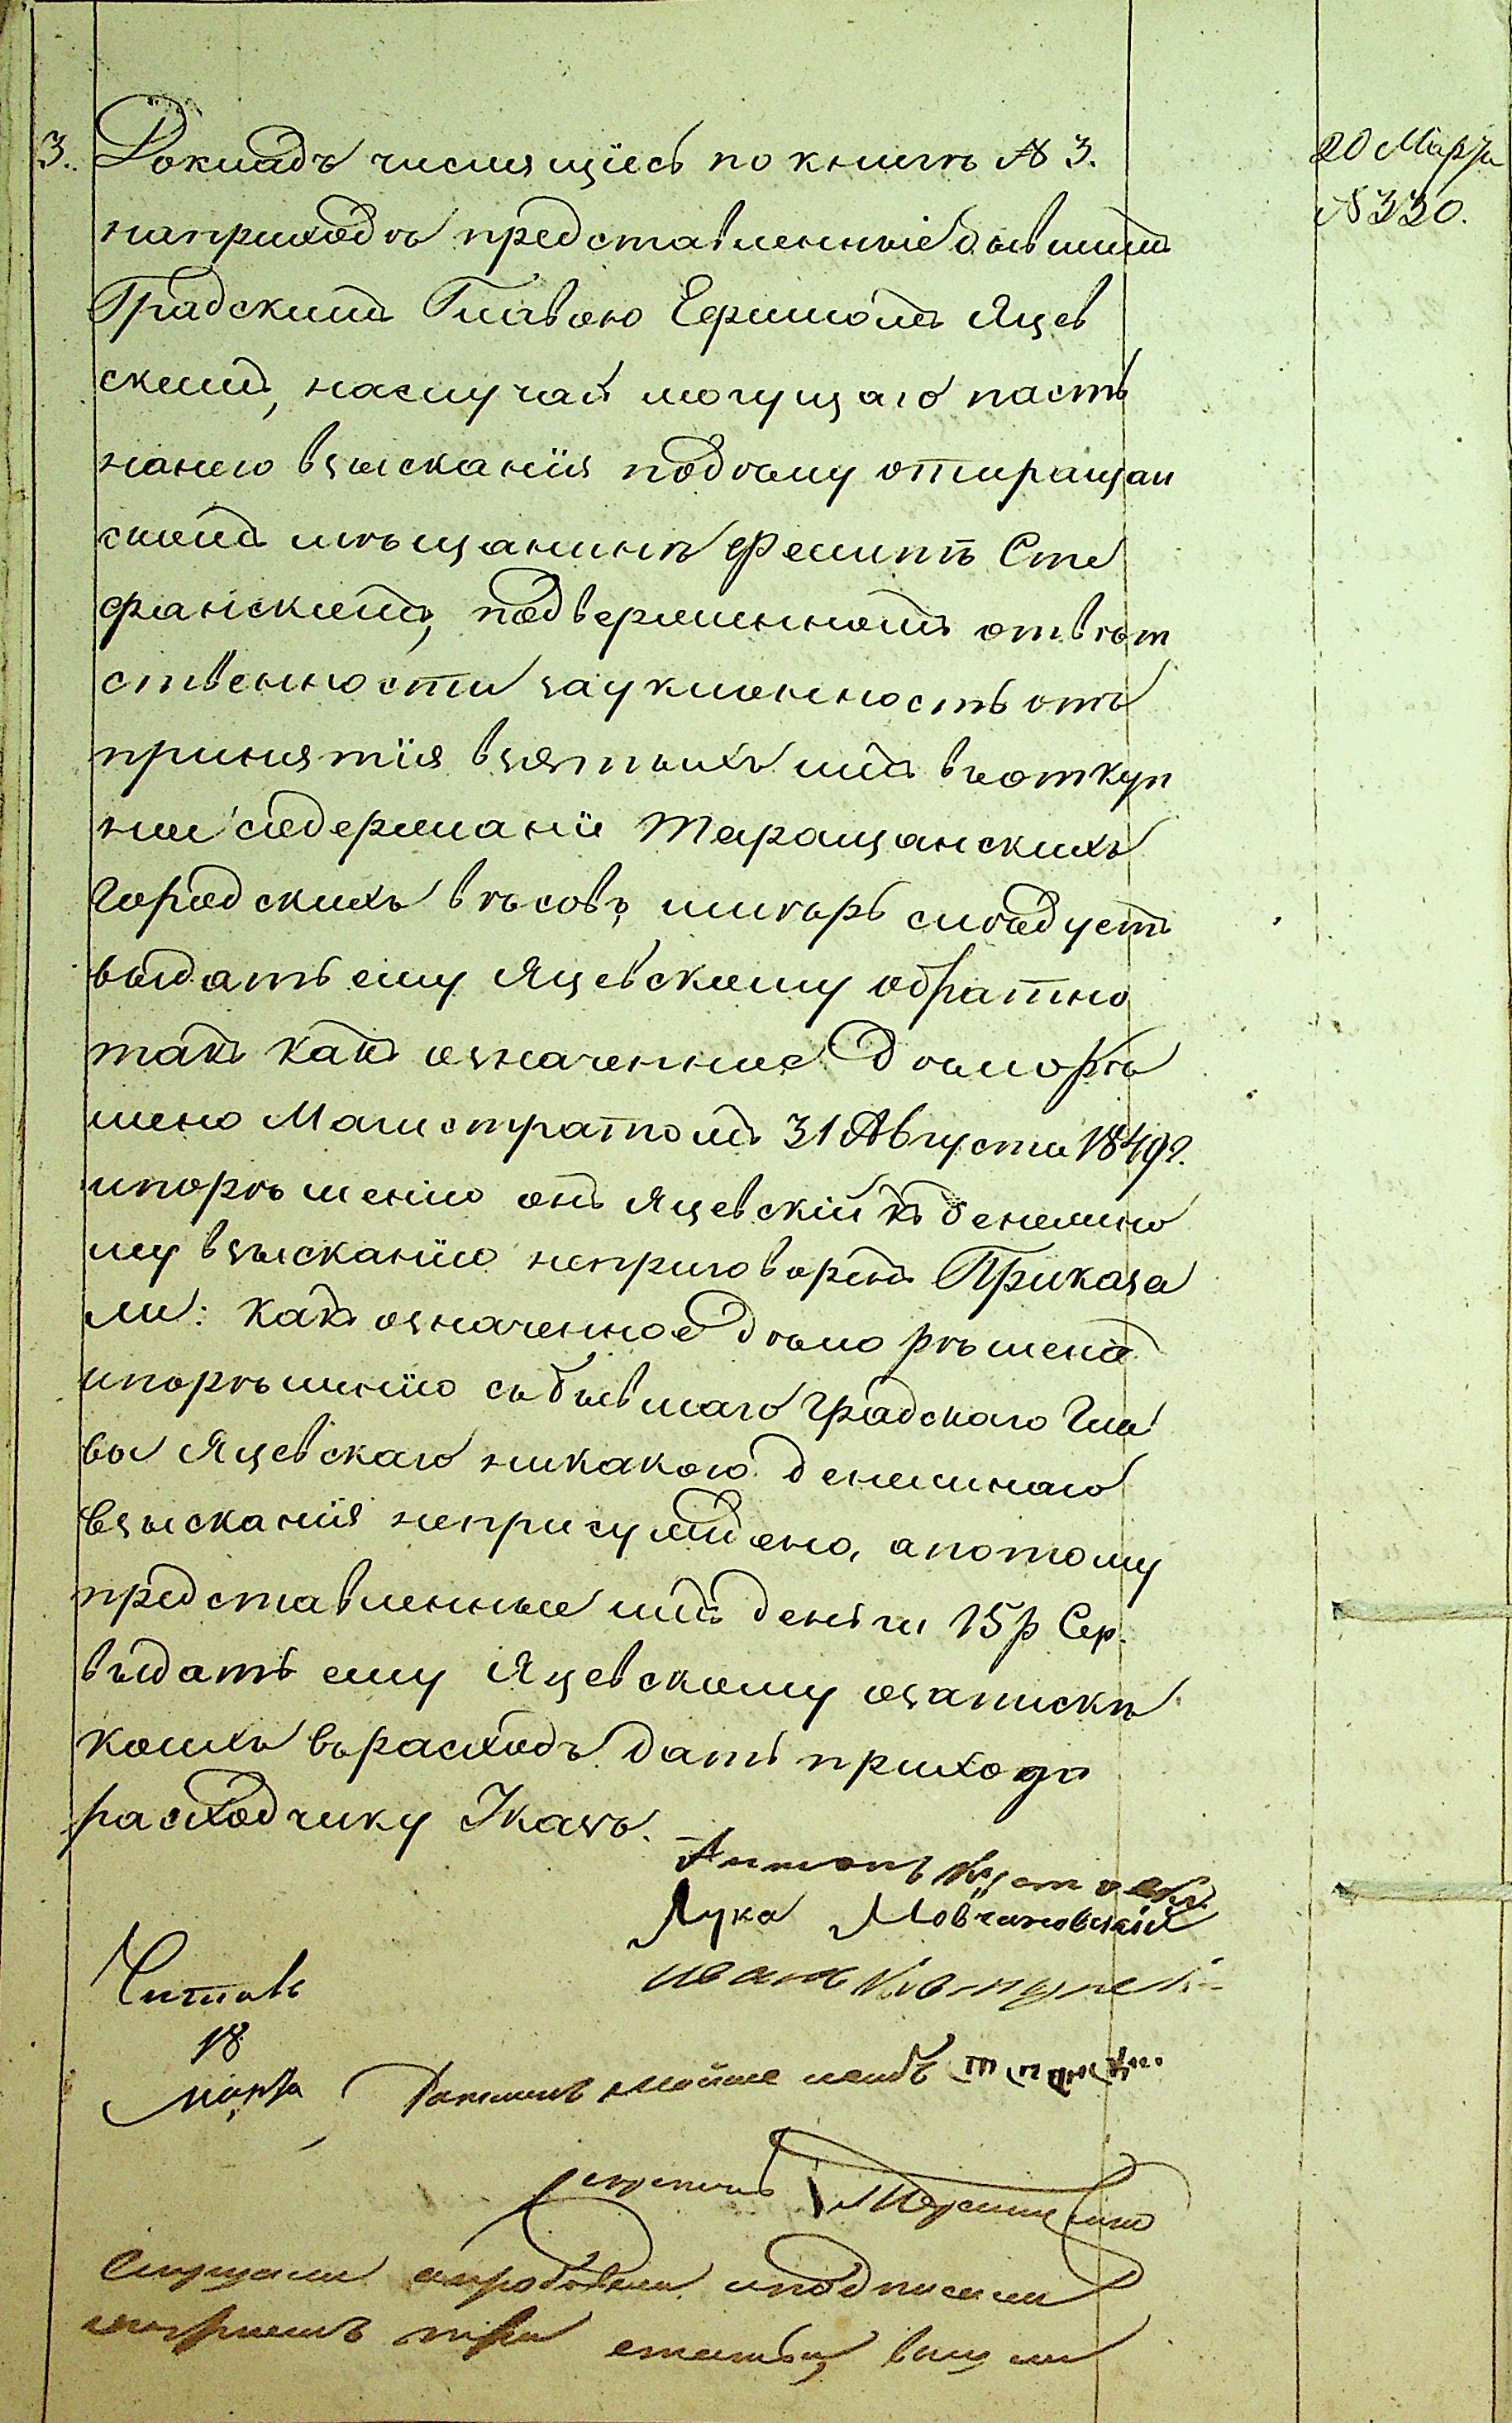 3. Докладъ числящіесь по книгѣ № 3.
20 Марта
№ 330.
наприходѣ представленніе бывшимъ
Градскимъ Главою Ефимомъ Яцев
скимъ, наслучай могущаго пасть
нанего взысканія подѣлу отаращан
скомъ мѣщанинѣ Филипѣ Сте
фанскимъ, подверженномъ отвѣт
ственности зауклонность отъ
принятія взятыхъ имъ въоткуп
ное содержаніе Таращанскихъ
городскихъ вѣсовъ, имѣръ слѣдуетъ
выдать ему Яцевскому обратно
такъ какъ означенное дѣло рѣ
шено Магистратомъ 31 Августа 1849 г.
ипорѣшенію онъ Яцевскій къ денежно
му взысканію неприговоренъ Приказа
ли: какъ означенное дѣло рѣшено
ипорѣшенію съ бывшаго градскаго Гла
вы Яцевскаго никакого денежнаго
взысканія неприсуждено, апотому
представленные имъ деньги 15 р Сер.
выдать ему Яцевскому озапискѣ
коихъ върасходъ дать приходо
расходчику Указъ.
Антонъ
Лука Мовчановскій
Иванъ
Читалъ
18
марта
Слушали и подписали
три статьи